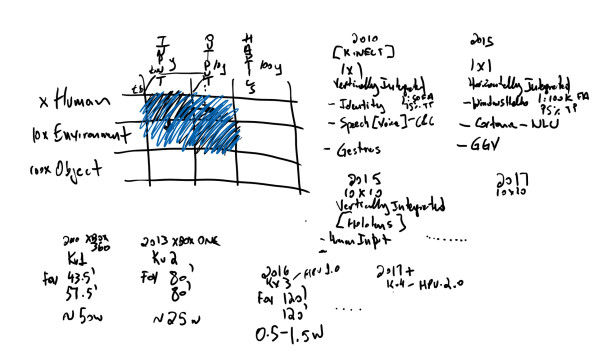 INPUT
OUTPUT
HAPTICS
y
10y
100y
x Human
10x Environment
100x Object
2010
[KINECT]
1x1
Vertically Integrated
- Identity
- Speech [Voice] - C&C
- Gestres
2015
1x1
Horizontally Integrated
- Windows Hello 1:100K FA
95% TP
- Cortana - NLU
- GGV
2015
10x10
Vertically Integrated
[Hololens]
- Human Input
.......
2017
10x10
2010 XBOX
360
Kv1
FoV 43.5'
57.5'
~50w
2013 XBOX ONE
Kv2
FoV 80'
80'
~25w
2016
Kv3 - HPU 1.0
FoV 120'
120'
0.5-1.5W
....
2017+
K.4 - HPU.2.0